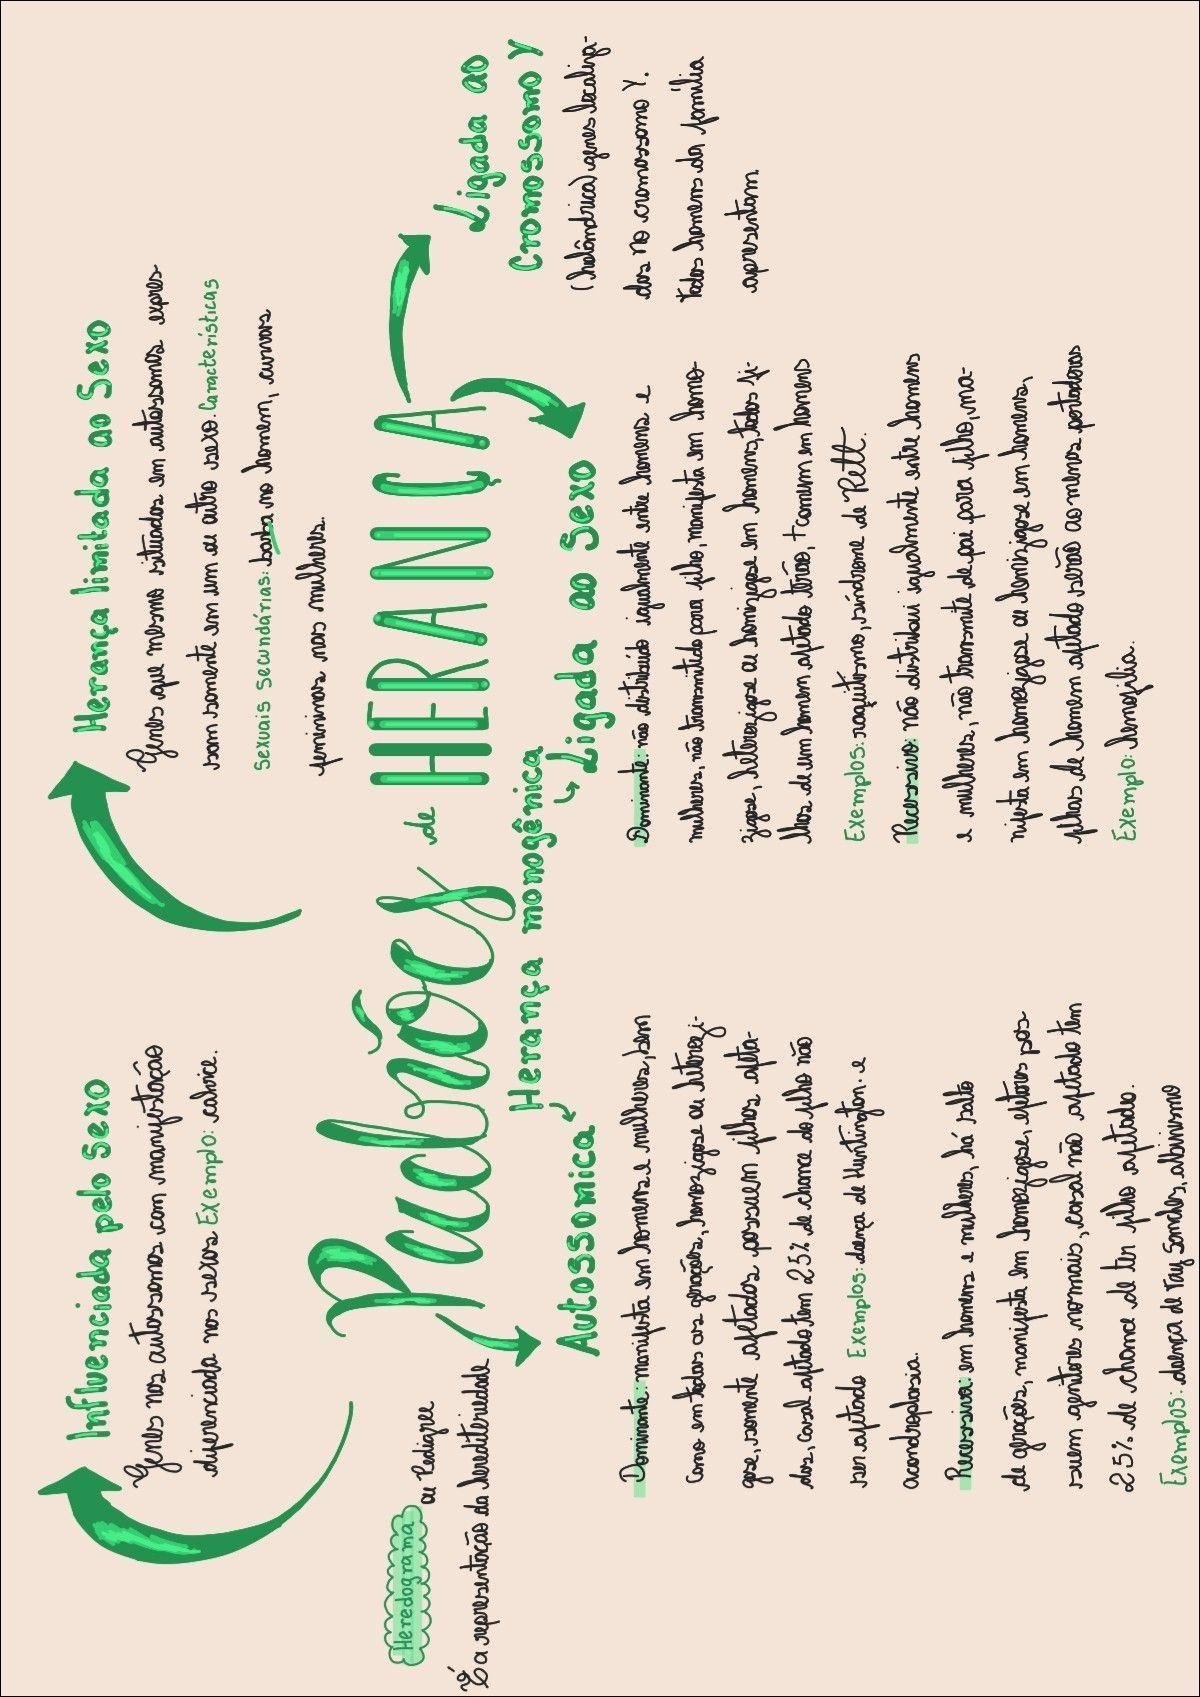 Influenciada pelo Sexo
Genes nos autossomos com manifestação
diferenciada nos sexos Exemplo: calvice.
Herança limitada ao Sexo
Genes que mesmo situados em autossomos expres-
sam somente em um ou outro sexo. Características
Sexuais Secundárias: barba no homem, curvas
femininas nas mulheres.
Heredograma
ou Pedigree
É a representação da hereditariedade
Padrões de HERANÇA
Herança monogênica
Autossomica
Dominante: manifesta em homens e mulheres, bem
como em todas as gerações, homozigose ou heterozi-
gose, somente afetados possuem filhos afeta-
dos, casal afetado tem 25% de chance do filho não
ser afetado Exemplos: doença de Huntington e
acondroplasia.
Recessiva: em homens e mulheres, há salto
de gerações, manifesta em homozigose, afetores pos-
suem genitores normais, casal não afetado tem
25% de chance de ter filho afetado.
Exemplos: doença de Tay Sanches, albinismo
Ligada ao Sexo
Dominante: não distribuído igualmente entre homens e
mulheres, não transmitido para filho, manifesta em homo-
zigose, heterozigose ou homizigose em homens, todos fi-
lhos de um homem afetado terão, + comum em homens
Exemplos: raquitismo, síndrome de Rett.
Recessivo: não distribui igualmente entre homens
e mulheres, não transmite de pai para filho, ma-
nifesta em homozigose ou hemizigose em homens,
filhas de homem afetado serão ao menos portadoras
Exemplo: hemofilia.
Ligada ao
Cromossomo Y
(holândrica) genes localiza-
dos no cromossomo Y.
todos homens da família
apresentam